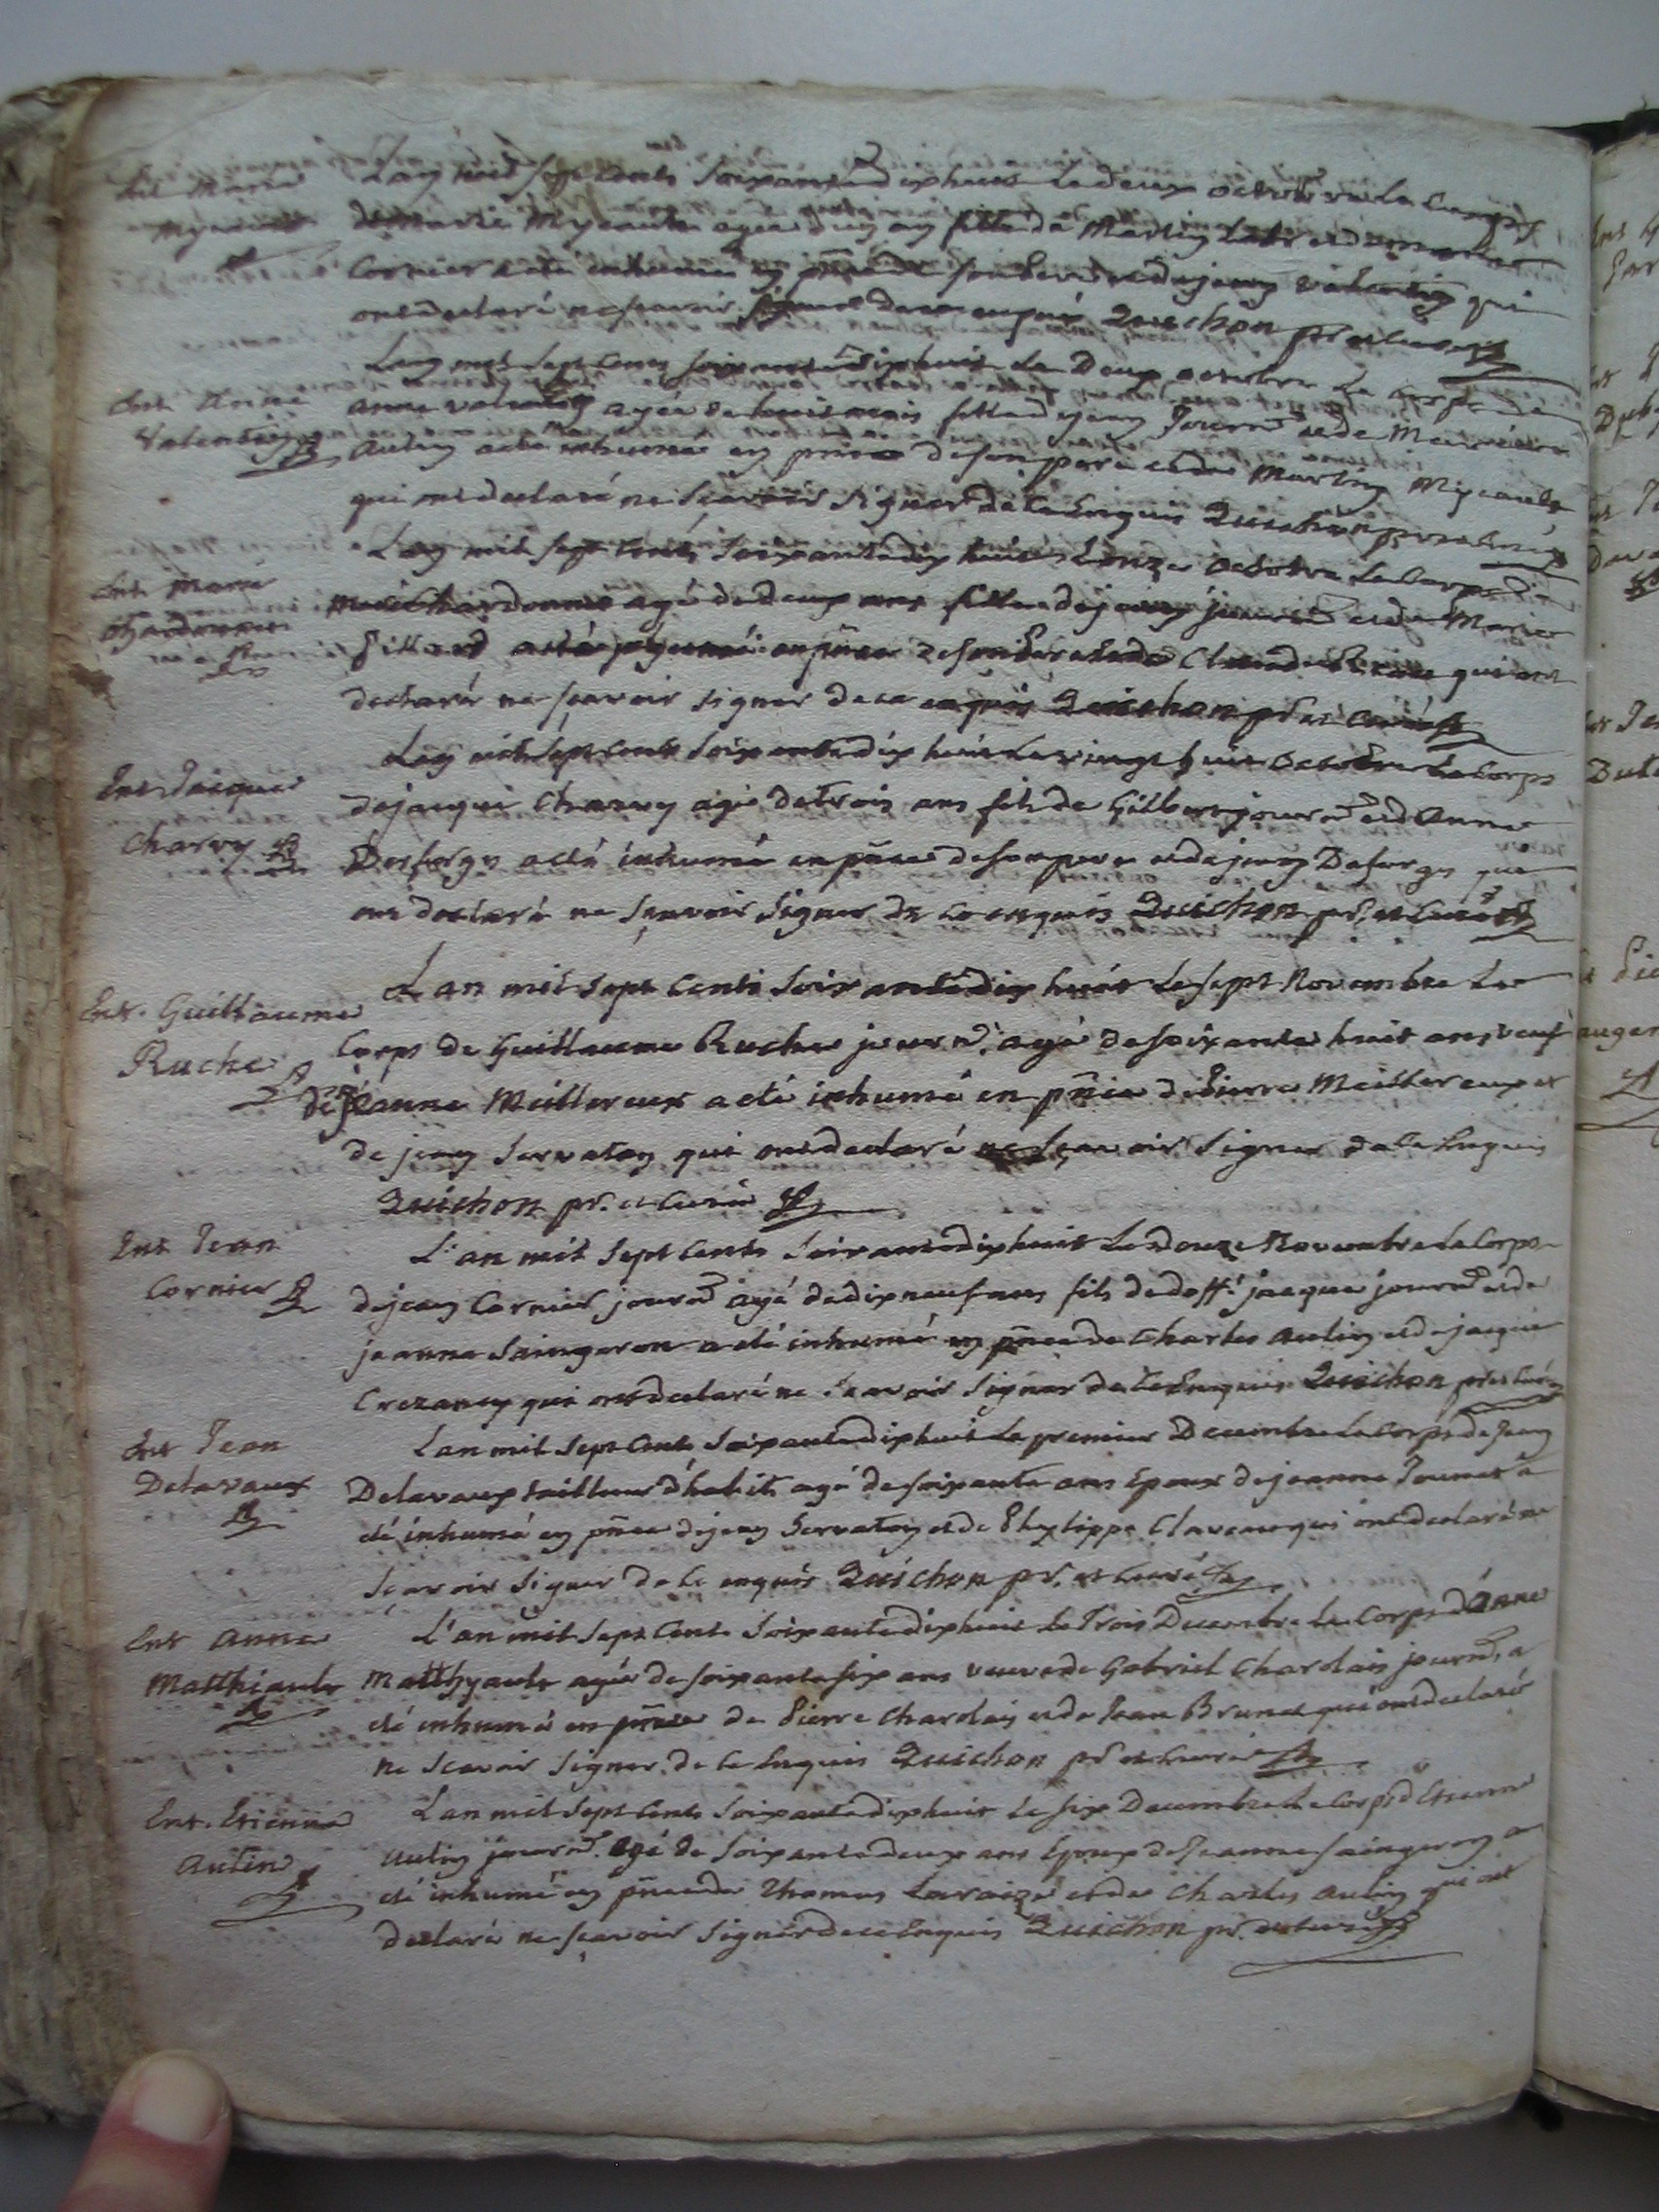 Ent Marie
Lan mil sept Cents Soixantedixhuit Le deux octobre Le Corps
de Marie Mijeault agée dun an fille de Martin et de
Cornier a été inhumée en pñce de et de jean valentin qui
ont declaré ne scavoir signer de ce enquis Quichon pr et curé
Ent Anne
Valentin
Lan mil Sept Cents Soixantedixhuit Le Deux octobre Le Corps de
anne valentin agée de huit mois fille de jean Journ̄ et de
Autin a été inhumé en pñce de son pere et de Martin Mijeault
qui ont declaré ne Scavoir Signer de Ce Enquis Quichon pr et curé
Ent Marie
Chardonnet
Lan mil Sept Cents Soixantedix huit Lonze octobre Le Corps de
Marie Chardonnet agé de deux ans fille de jean journ̄ et de Marie
Pittard a été inhumé en pñce de son pere et de qui ont
declaré ne scavoir signer de ce enquis Quichon pr et Curé
Ent Jacque
Charvy
Lan mil Sept Cents Soixantedix huit Le vingt huit octobre Le Corps
de jacque Charvy agé de trois ans fils de Gilbert journ̄ et d Anne
Desforges a été inhumé en pñce de son pere et de jean Deforges qui
ont declaré ne Sçavoir Signer de Ce enquis Quichon pr et Curé
Ent. Guillaume
Ruche
Lan mil Sept Cents Soixantedix huit Le sept Novembre Le
Corps de Guillaume Ruche journ̄. agé de soixante huit ans veuf
de Jeanne Meillereux a été inhumé en pñce de Pierre Meillereux et
de jean Servaton qui ont declaré ne Sçavoir Signer de Ce Enquis
Quichon pr. et Curé
Ent Jean
Cornier
L'an mil Sept Cents Soixantedixhuit Le douze Novembre Le Corps
de jean Cornier journ̄ agé de dixneuf ans fils de deff.t jacque journ̄ et de
jeanne Saingeron a été inhumé en pñce de Charles Autin et de jacque
Crezancy qui ont declaré ne Scavoir Signer de Ce Enquis Quichon pr et Curé
Ent Jean
Delavaux
Lan mil Sept Cents Soixantedixhuit Le premier Decembre Le Corps de Jean
Delavaux tailleur d'habits agé de soixante ans Epoux de jeanne a
été inhumé en pñce de jean Servaton et de Phylippe qui ont declaré ne
Sçavoir Signer de Ce enquis Quichon pr. et Curé
Ent Anne
Matthiault
L'an mil Sept Cents Soixantedixhuit Le Trois Decembre Le Corps d'Anne
Matthyault agée de soixantesix ans veuve de Gabriel Charolais journ̄. a
été inhumé en pñce de Pierre Charolais et de Jean Brunet qui ont declaré
ne Scavoir Signer de Ce Enquis Quichon pr et Curé
Ent. Etienne
Autin
Lan mil Sept Cents Soixantedixhuit Le six Decembre Le Corps d'Etienne
Autin journ̄. agé de Soixantedeux ans Epoux de Jeanne Saingeron a
été inhumé en pñce de Thomas et de Charles Autin qui ont
declaré ne scavoir Signer de ce Enquis Quichon pr. et curé